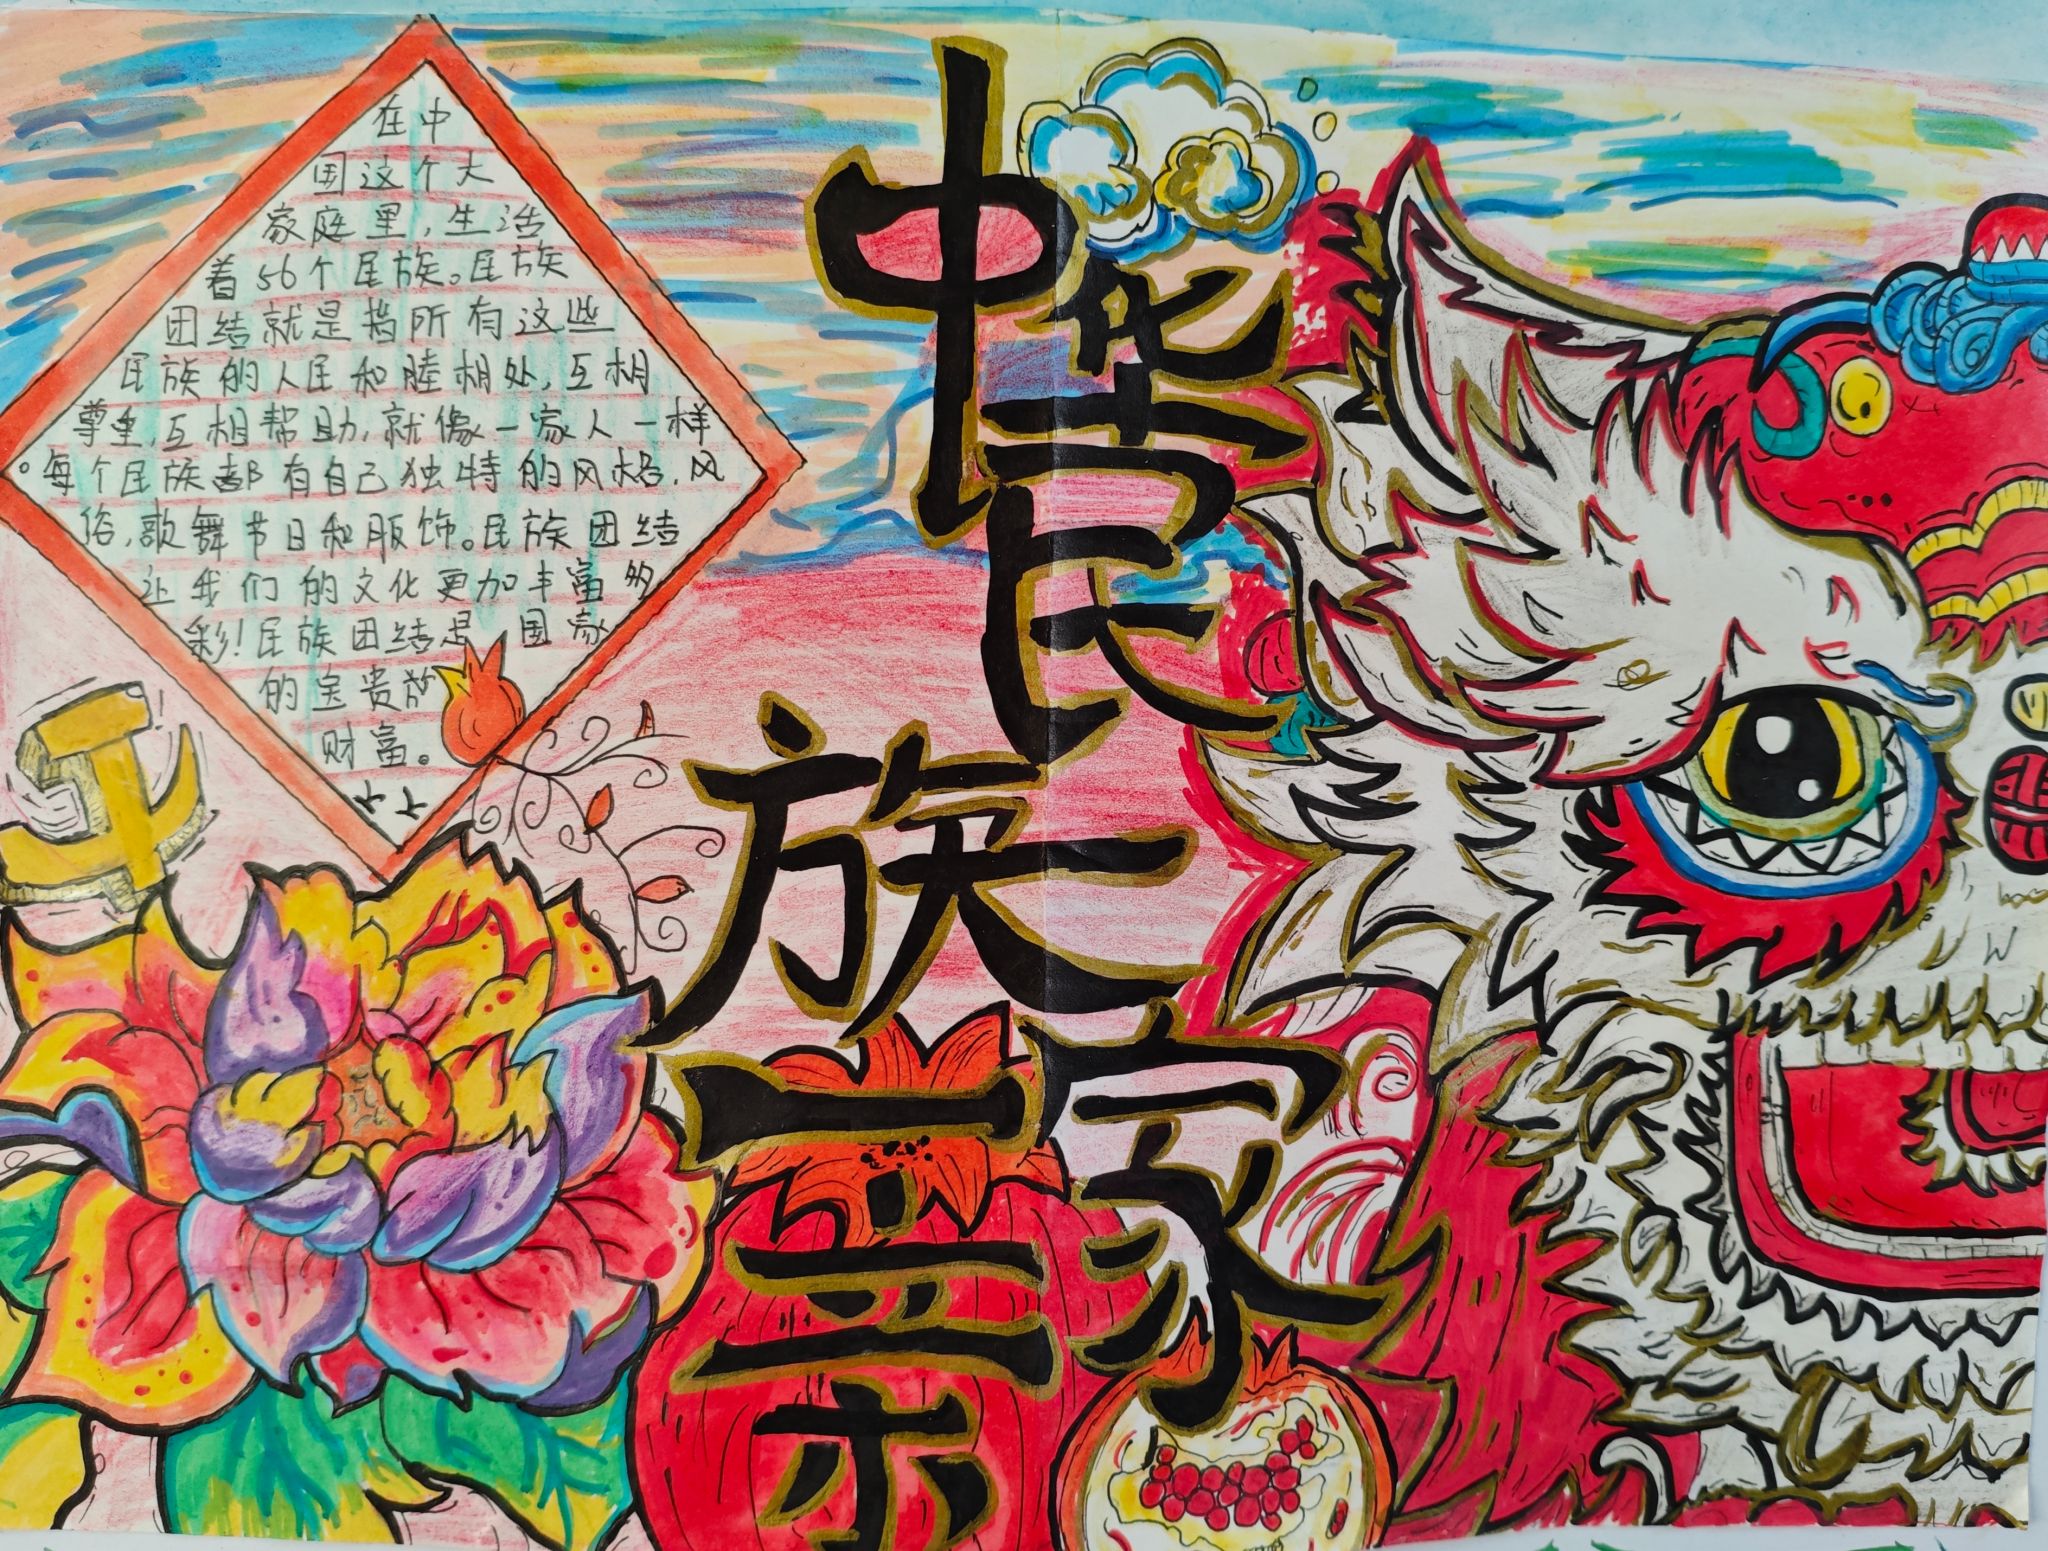 在中
国这个大
家庭里，生活
着56个民族。民族
团结就是指所有这些
民族的人民和睦相处，互相
尊重，互相帮助，就像一家人一样
。每个民族都有自己独特的风格，风
俗，歌舞节日和服饰。民族团结
让我们的文化更加丰富多
彩！民族团结是国家
的宝贵
财富。
中华民族一家亲